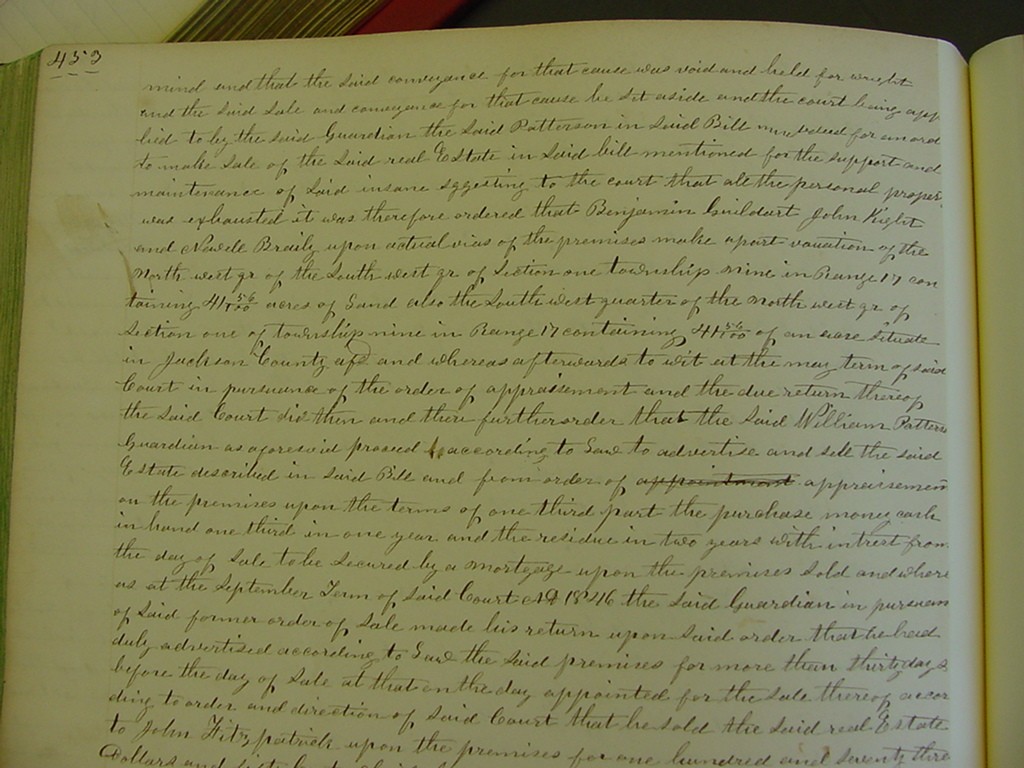 453
mind and that the said conveyance for that cause was void and held for wright
and the said sale and conveyance for that cause be set aside and the court being app
lied to by the said Guardian the said Patterson in said Bill for an ord
to make sale of the said real Estate in said bill mentioned for the support and
maintenance of said insane sggesting to the court that all the personal proper
was exhausted it was therefore ordered that Benjamin Guildart John Kight
and Newell Braily upon actual vias of the premises make apart vauation of the
North west qr of the South west qr of Section one township nine in Range 17 con
taining 41 56/100 acres of Land also the South west quarter of the North west qr of
Section one of township nine in Range 17 containing 41 56/100 of an acre situate
in Jackson County afsd and whereas afterwards to wit at the may term of said
Court in pursuance of the order of appraisement and the due return thereof
the said Court did then and there further order that the said William Patters
Guardian as aforesaid proceed according to Law to advertise and sell the said
Estate described in said Bill and from order of appointment appraisemen
on the premises upon the terms of one third part the purchase money cash
in hand one third in one year and the residue in two years with intrest from
the day of sale to be secured by a mortgage upon the premises sold and where
as at the September Term of said Court AD 1846 the said Guardian in pursuan
of said former order of sale made his return upon said order that he had
duly advertised according to Law the said premises for more than thirty days
before the day of sale at that on the day appointed for the sale thereof accor
ding to order and direction of said Court that he sold the said real Estate
to John Fitzpatrick upon the premises for one hundred and seventy thre
Dollars and